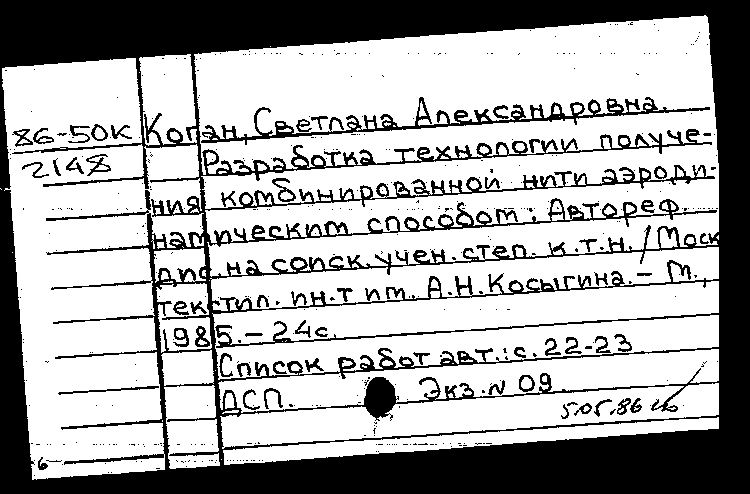 86-50к Коган, Светлана Александровна.
2148 Разработка технологии получе-
ния комбинированной нити аэроди-
намическим способом: Автореф.
дис. на соиск. учен. степ. к.т.н. / Моск
текстил. ин-т им. А.Н. Косыгина. – М.,
1985. – 24с.
Список работ авт.: с. 22-23
ДСП. Экз. N 09.
5.05.86
6